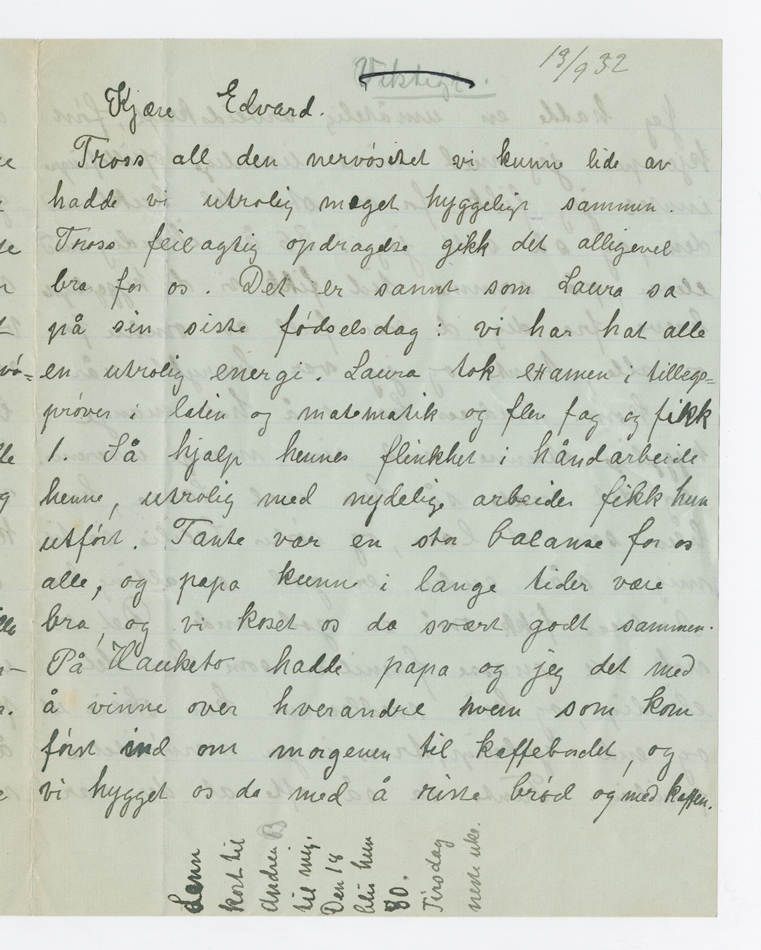 Viktig.
19/9 32
Kjære Edvard.
Tross all den nervøsitet vi kunne lide av
hadde vi utrolig meget hyggelig sammen.
Tross feilagtig opdragelse gikk det alligevel
bra for os. Det er sannt som Laura sa
på sin siste fødselsdag: vi har hat alle
en utrolig energi. Laura tok examen i tillegs=
prøver i latin og matematik og fler fag og fikk
1. Så hjalp hennes flinkhet i håndarbeide
henne, utrolig med nydelige arbeider fikk hun
utført. Tante var en stor balanse for os
alle, og papa kunne i lange tider være
bra, og vi koset os da svært godt sammen.
På Hauketo hadde papa og jeg det med
å vinne over hverandre hvem som kom
først ind om morgenen til kaffebordet, og
vi hygget os da med å riste brød og med kaffen.
Senn
kort til
Andrea B
til mig.
Den 18
blir hun
80.
Tirsdag
neste uke.